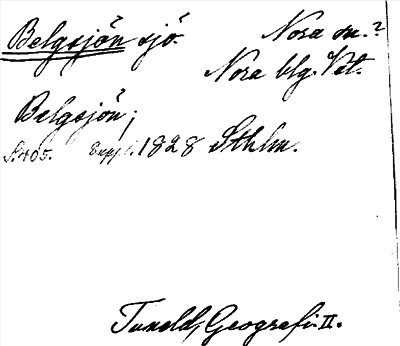 Belgsjön sjö. Nora sn.?
Nora blg. Vst.
Belgsjön;
S. 405. Suppl. 1828 Sthlm.
Tuneld, Geografi II.